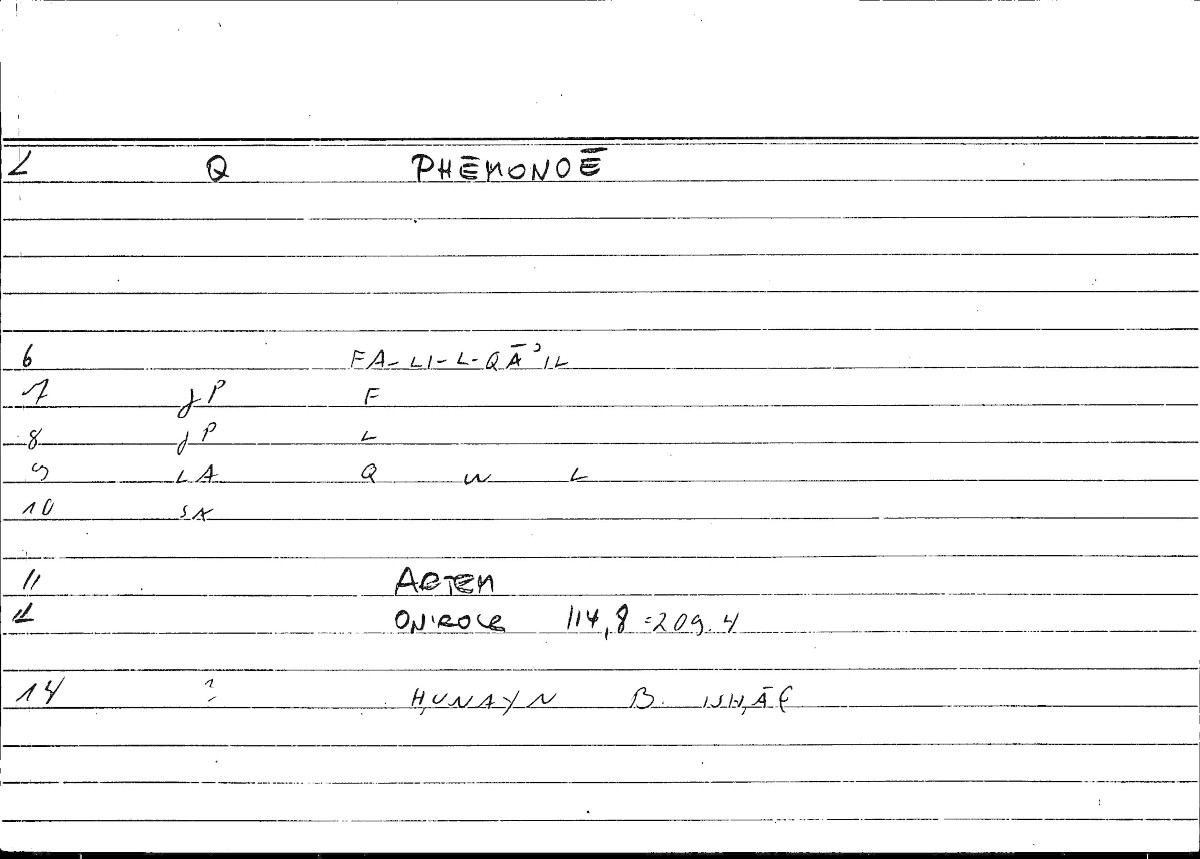 L Q PHĒMONOĒ
6 FA-LI-L-QĀʾIL
7 JP F
8 JP L
9 LA Q W L
10 SA
11 ARTEM
12 ONIROCR 114,8=209.4
14 ? ḤUNAYN B. ISḤĀQ